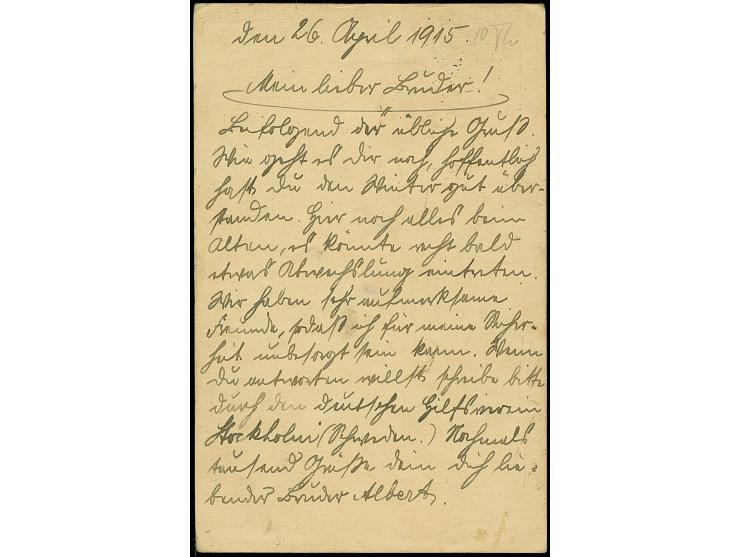 den 26. April 1915.
Mein lieber Bruder!
Befolgend der übliche Gruß.
Wie geht es dir noch, hoffentlich
hast du den Winter gut über-
standen. Hier noch alles beim
Alten, es könnte recht bald
etwas Abwechslung eintreten.
Wir haben sehr aufmerksame
Freunde, sodaß ich für meine Sicher-
heit unbesorgt sein kann. Wenn
du antworten willst schreibe bitte
durch den deutschen Hilfsverein
Stockholm (Schweden.) Nochmals
tausend Grüße dein dich lie-
bender Bruder Albert.